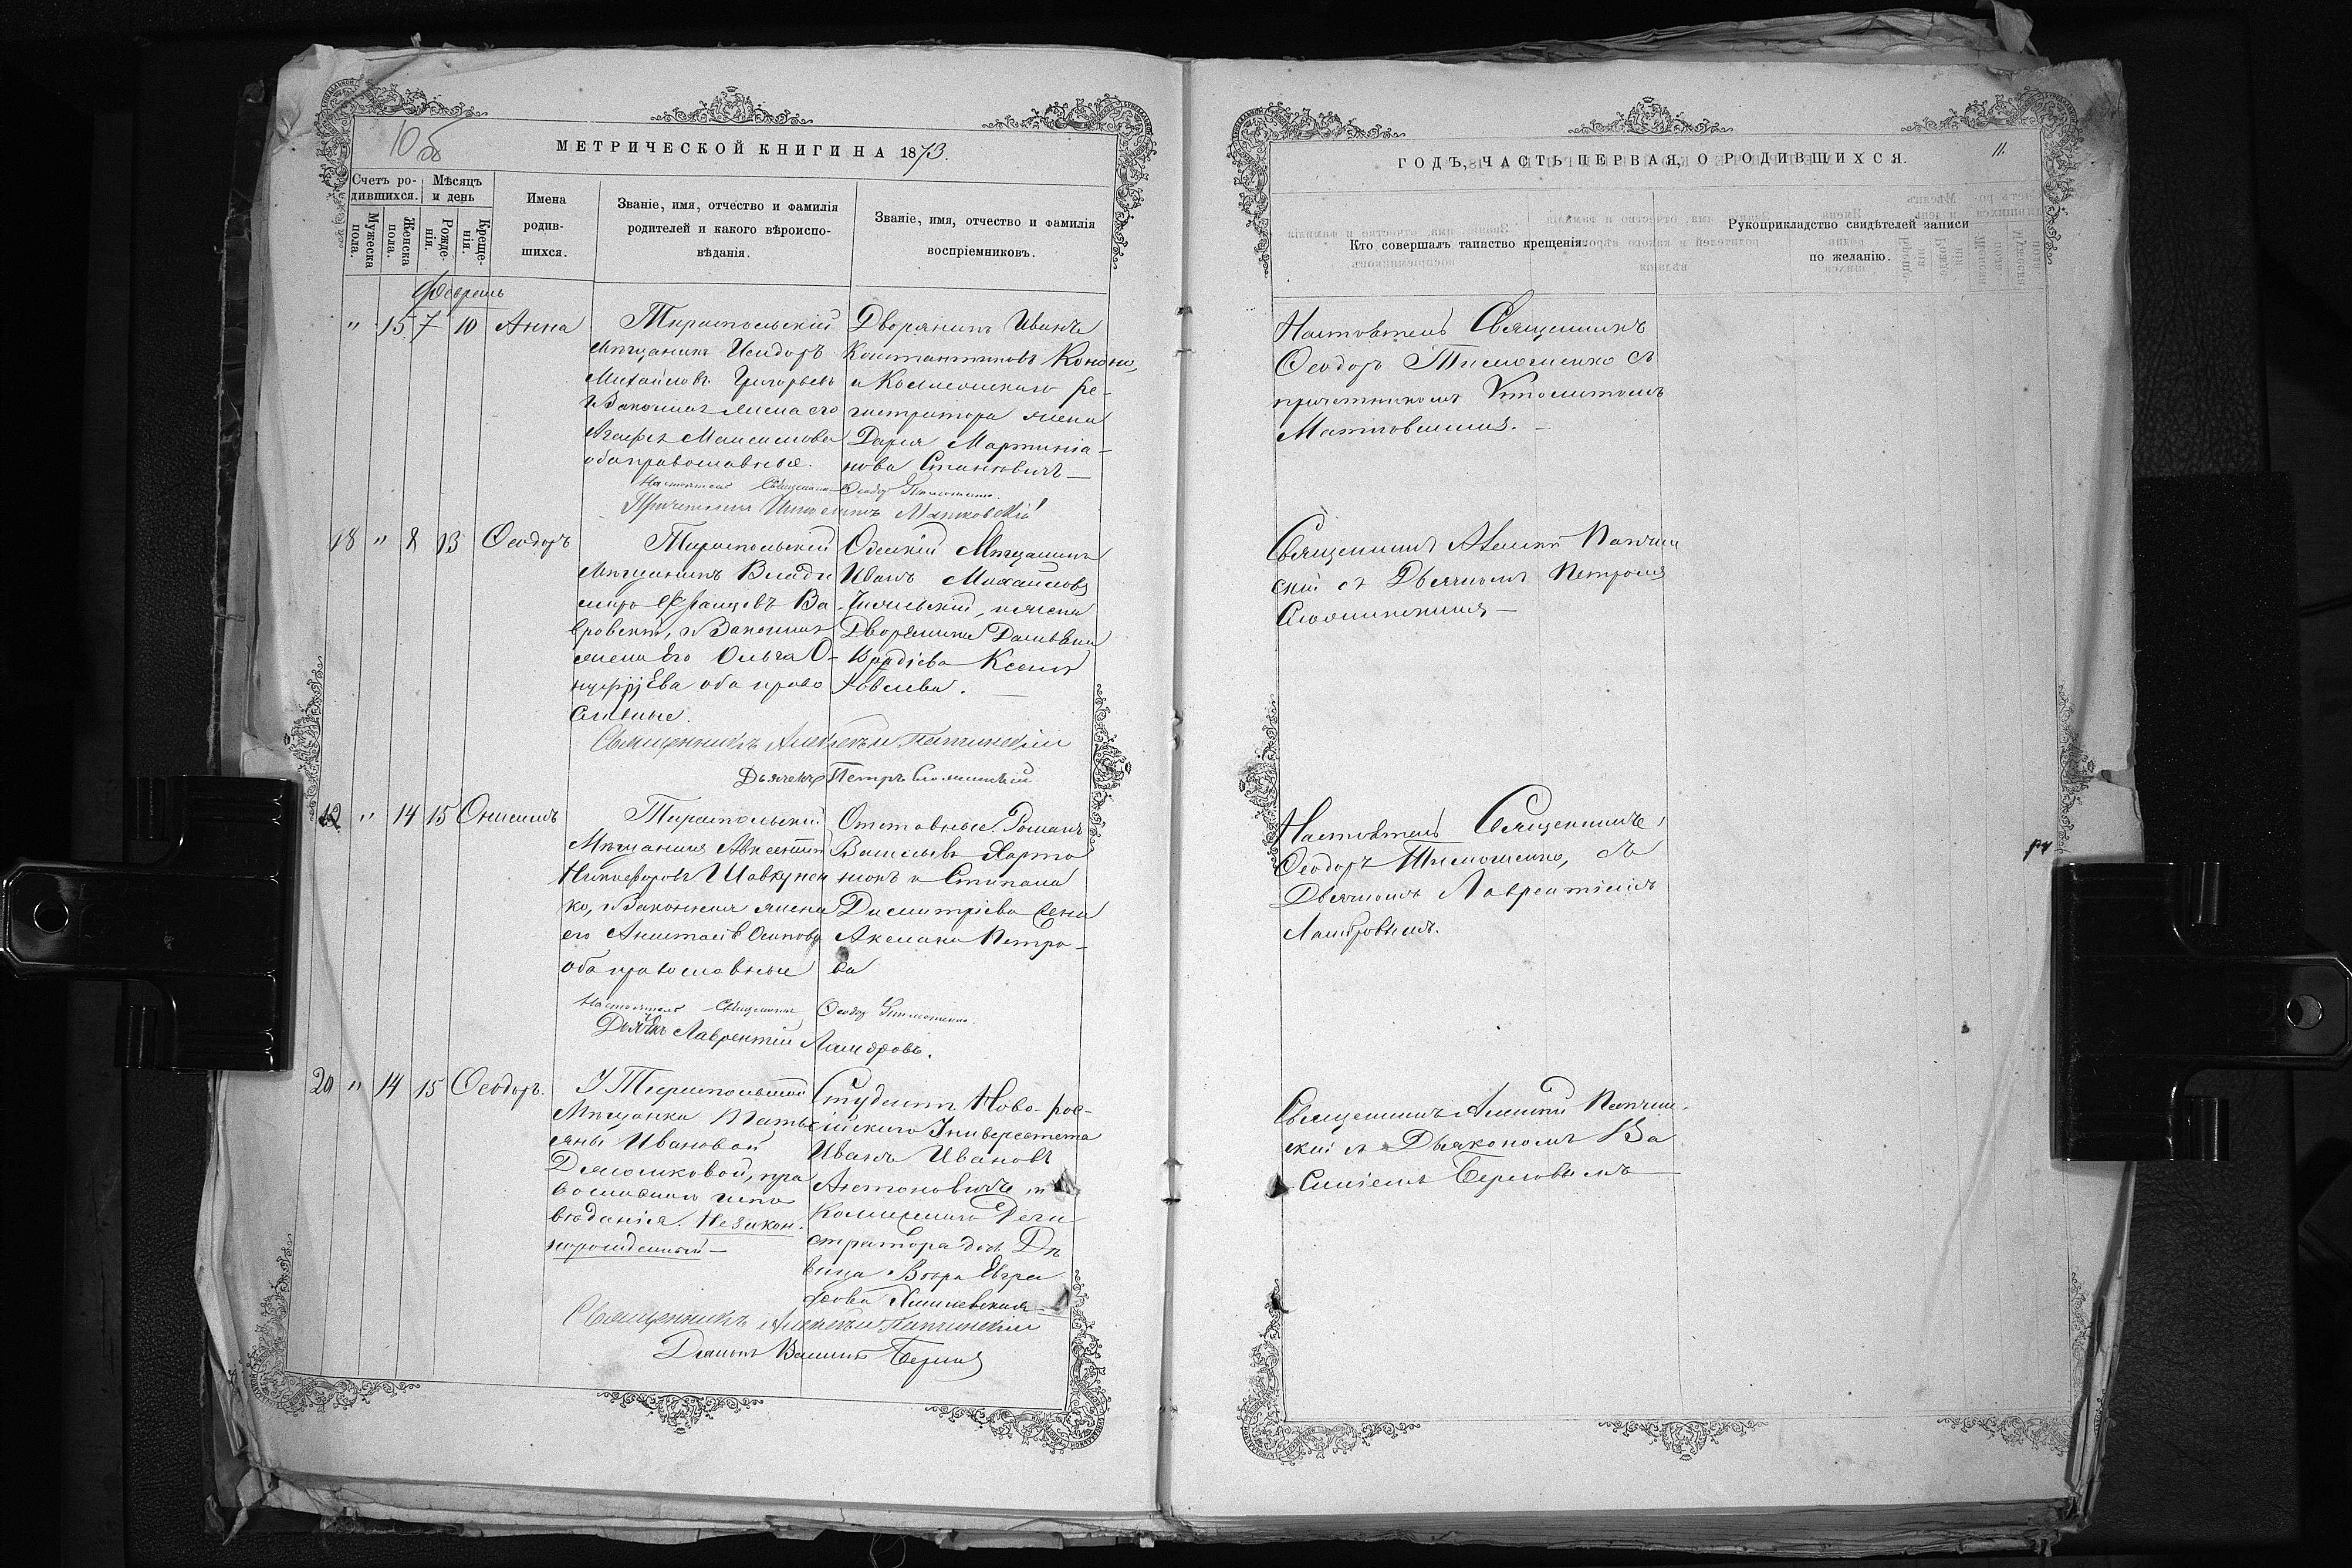 10 об
МЕТРИЧЕСКОЙ КНИГИ НА 1873.
Счетъ ро-
дившихся.
Мѣсяцъ
и день
Мужеска
пола.
Женска
пола.
Рожде-
нія.
Креще-
нія.
Имена
родив-
шихся.
Званіе, имя, отчество и фамилія
родителей и какого вѣроиспо-
вѣданія.
Званіе, имя, отчество и фамилія
воспріемниковъ.
Февраль
" 15 7 10 Анна
Тираспольскій
мѣщанинъ Исидоръ
Михайловъ Григорьевъ
и Законная жена его
Агафія Максимова
оба православные.
Дворянинъ Иванъ
Константиновъ Кононо,
и Коллежскаго ре-
гистратора жена
Дарья Мартиніа-
нова Станкевичъ
Настоятель Священникъ Ѳеодоръ Тимошенко
Причетникъ Ипполитъ Матковскій
18 " 8 13 Ѳеодоръ
Тираспольскій
Мѣщанинъ Влади
миръ Францовъ Ва
вровскій, и Законная
жена Его Ольга О-
нуфріева оба право
славные.
Одесскій Мѣщанинъ
Иванъ Михайловъ
и жена
Дворянина
Ксенія
Яковлева.
Священникъ Алексѣй Панчинскій
Дьячекъ Петръ Сломинскій
19 " 14 15 Онисимъ
Тираспольскій
Мѣщанинъ Авксентій
Никифоровъ Шавкунен
ко, и Законная жена
его Анастасія Осипова
оба православные
Отставные Романъ
Васильевъ Харто
нюкъ и Степана
Димитріева жена
Аксинія Петро-
ва
Настоятель Священникъ Ѳеодоръ Тимошенко
Дьячекъ Лаврентій Лашкровъ.
20 " 14 15 Ѳеодоръ.
У Тираспольской
Мѣщанки Тать
яны Ивановой
Демонковой, пра
вославнаго испо
вѣданія. Незакон.
норожденный
Студентъ Ново-рос-
сійскаго Университета
Иванъ Ивановъ
Антоновичъ и
Коллежскаго Реги
стратора дочь Дѣ
вица Вѣра Евгра
фова
Священникъ Алексѣй Панчинскій
Дьяконъ Василій Берловъ
ГОДЪ, ЧАСТЬ ПЕРВАЯ, О РОДИВШИХСЯ.
11.
Кто совершалъ таинство крещенія.
Рукоприкладство свидѣтелей записи
по желанію.
Настоятель Священникъ
Ѳеодоръ Тимошенко съ
причетникомъ Ипполитомъ
Матковскимъ.
Священникъ Алексѣй Панчин
скій съ Дьячкомъ Петромъ
Сломинскимъ
Настоятель Священникъ
Ѳеодоръ Тимошенко, съ
Дьячкомъ Лаврентіемъ
Лашкровымъ.
Священникъ Алексѣй Панчин-
скій съ Дьякономъ Ва
силіемъ Берловымъ